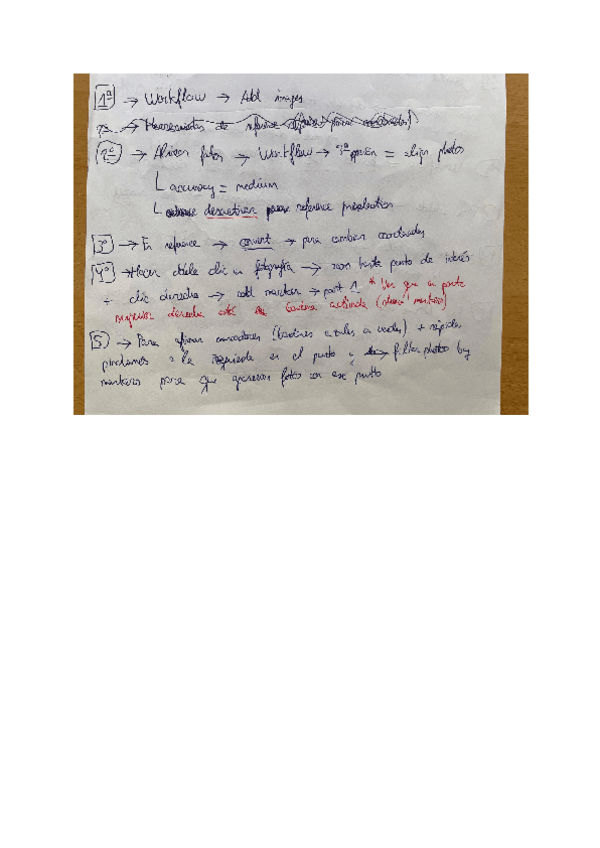 1º → Workflow → Add images
2º → Alinear fotos → Workflow → 3ª opción = align photos
accuracy = medium
desactivar reference preselection
3º → En reference → convert → para cambiar coordenadas
4º → Hacer doble clic en fotografía → zoom hasta punto de interés
+ clic derecho → add marker → point 1 * Ver que en parte
superior derecha esté banderina activada (show markers)
5 → Para afinar marcadores (banderines azules a verdes) + rápido
pinchamos a la izquierda en el punto y → filter photos by
markers para que aparezcan fotos con ese punto